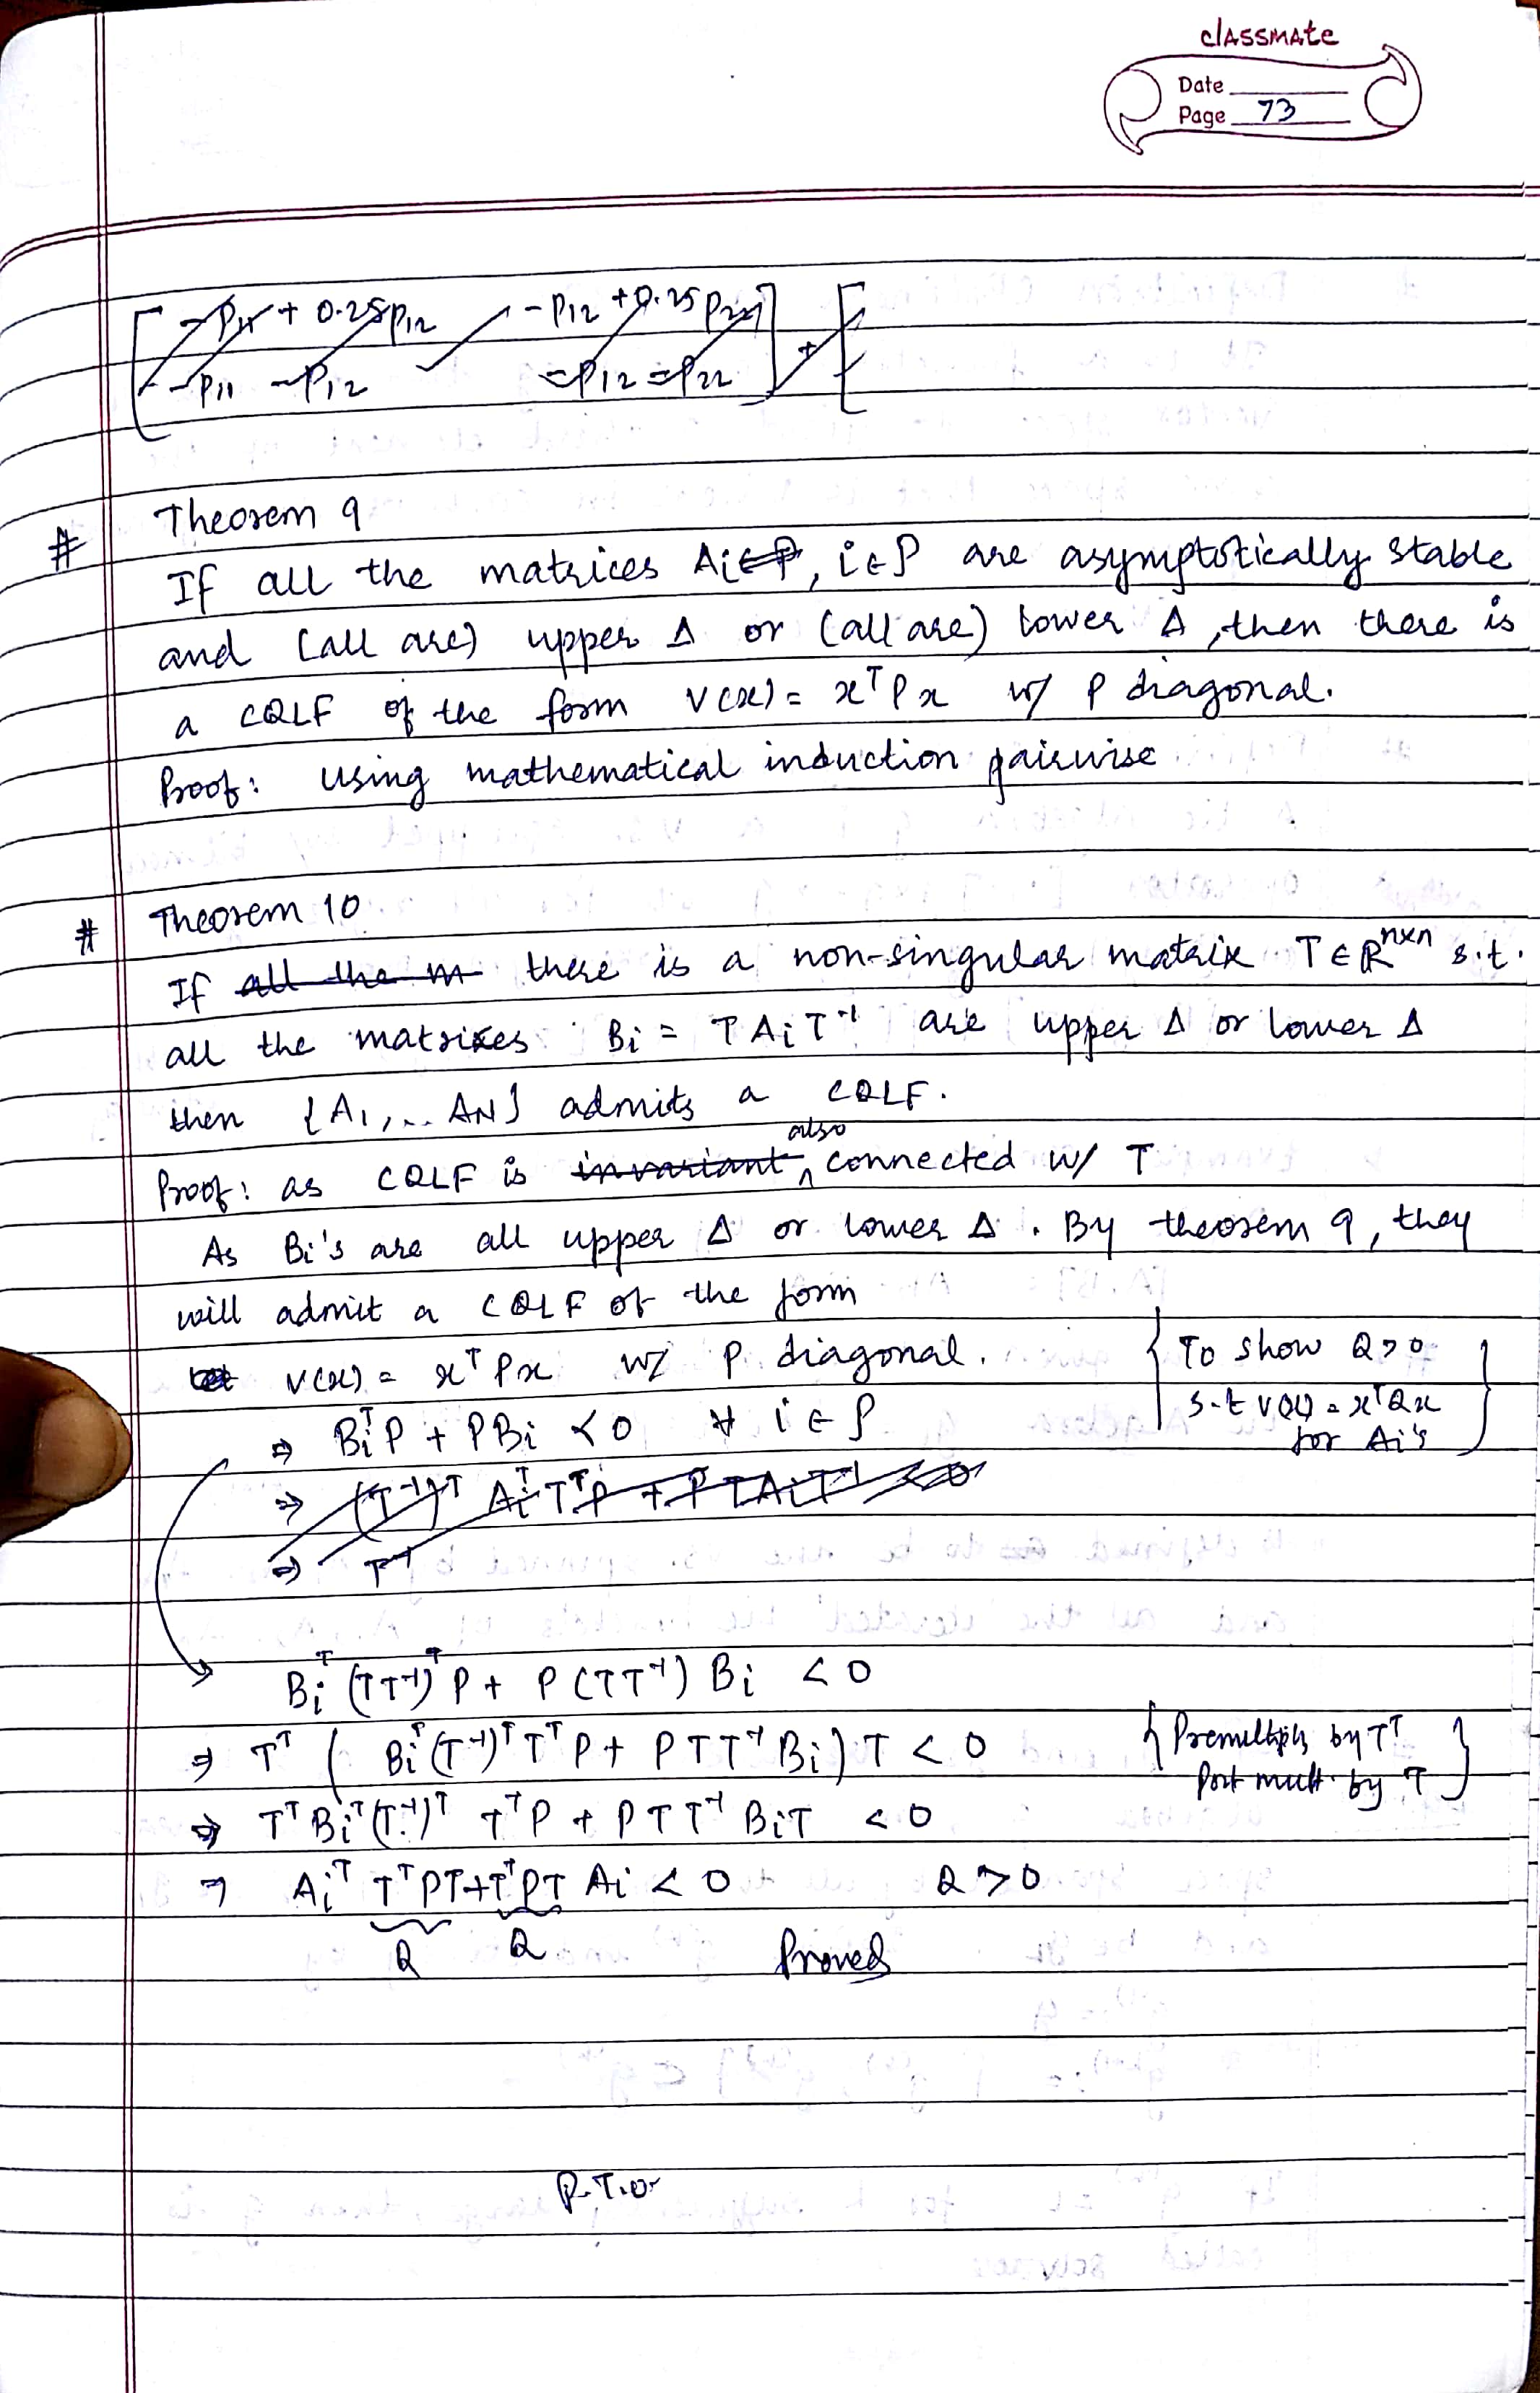 classmate
Date
Page 73
[ -P11 + 0.25P12 -P12 + 0.25P22 ] + [
-P11 -P12 -P12 -P22
# Theorem 9
If all the matrices Ai∈P, i∈P are asymptotically stable
and (all are) upper Δ or (all are) lower Δ, then there is
a CQLF of the form V(x) = xᵀPx w/ P diagonal.
Proof: using mathematical induction pairwise
# Theorem 10
If all the m there is a non-singular matrix T∈ℝⁿˣⁿ s.t.
all the matrixes Bi = TAiT⁻¹ are upper Δ or lower Δ
then {A1,... AN} admits a CQLF.
Proof: as CQLF is invariant also connected w/ T
As Bi's are all upper Δ or lower Δ. By theorem 9, they
will admit a CQLF of the form
V(x) = xᵀPx w/ P diagonal. { To show Q>0
⇒ BiᵀP + PBi < 0 ∀ i∈P s.t V(x) = xᵀQx
for Ai's }
⇒ (T⁻¹)ᵀ AiᵀTᵀP + PTAiT⁻¹ < 0
⇒ T⁻¹
Biᵀ(TT⁻¹)ᵀP + P(TT⁻¹)Bi < 0
⇒ Tᵀ ( Biᵀ(T⁻¹)ᵀTᵀP + PTT⁻¹Bi)T < 0 { Premultiply by Tᵀ
Post mult. by T }
⇒ TᵀBiᵀ(T⁻¹)ᵀ TᵀP + PTT⁻¹BiT < 0
⇒ Aiᵀ TᵀPT + TᵀPT Ai < 0 Q > 0
Q Q Proved
P.T.O.